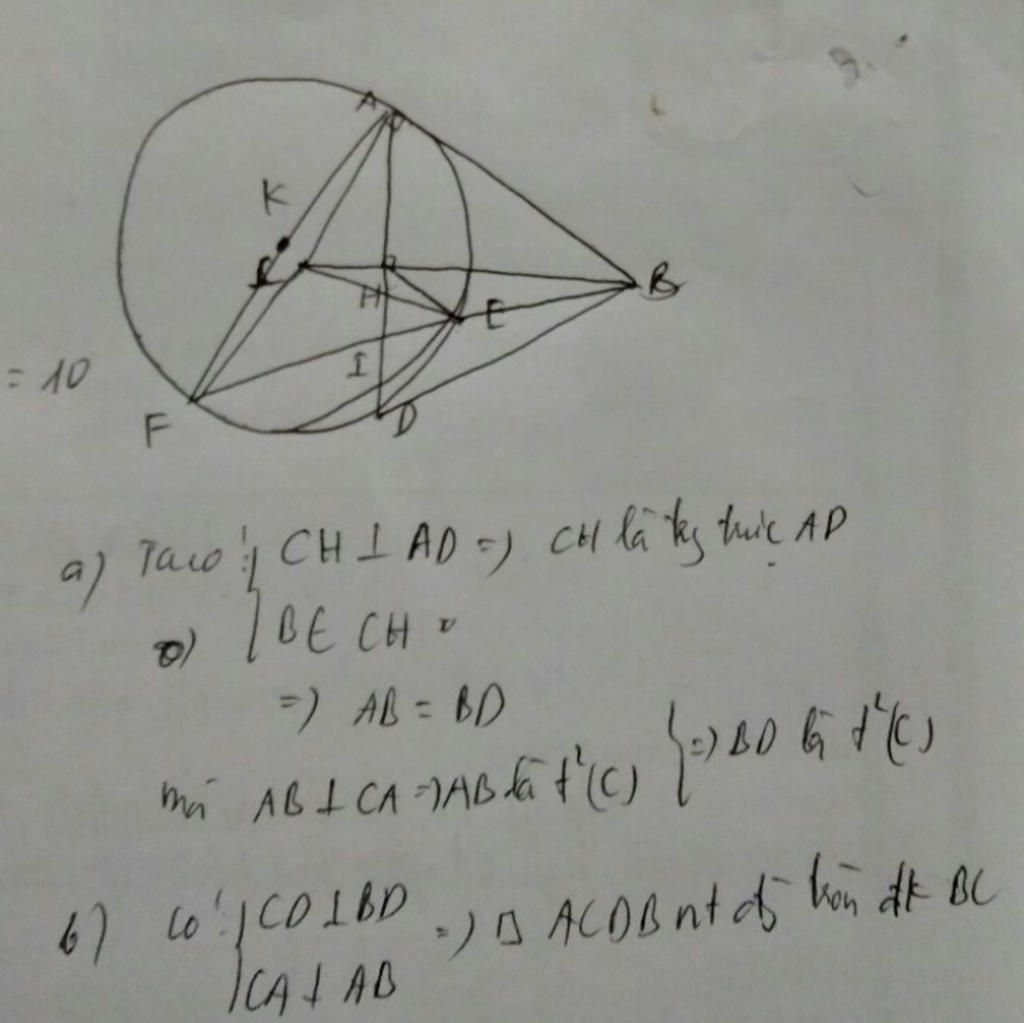 A
K
C
B
H
E
I
= 10
F
D
a) Ta có: { CH ⊥ AD => CH là trg trực AD
B ∈ CH
=> AB = BD
mà AB ⊥ CA => AB là t²(C) } => BD là t²(C)
b) Có: { CD ⊥ BD => ACDB nt đg tròn đk BC
CA ⊥ AB